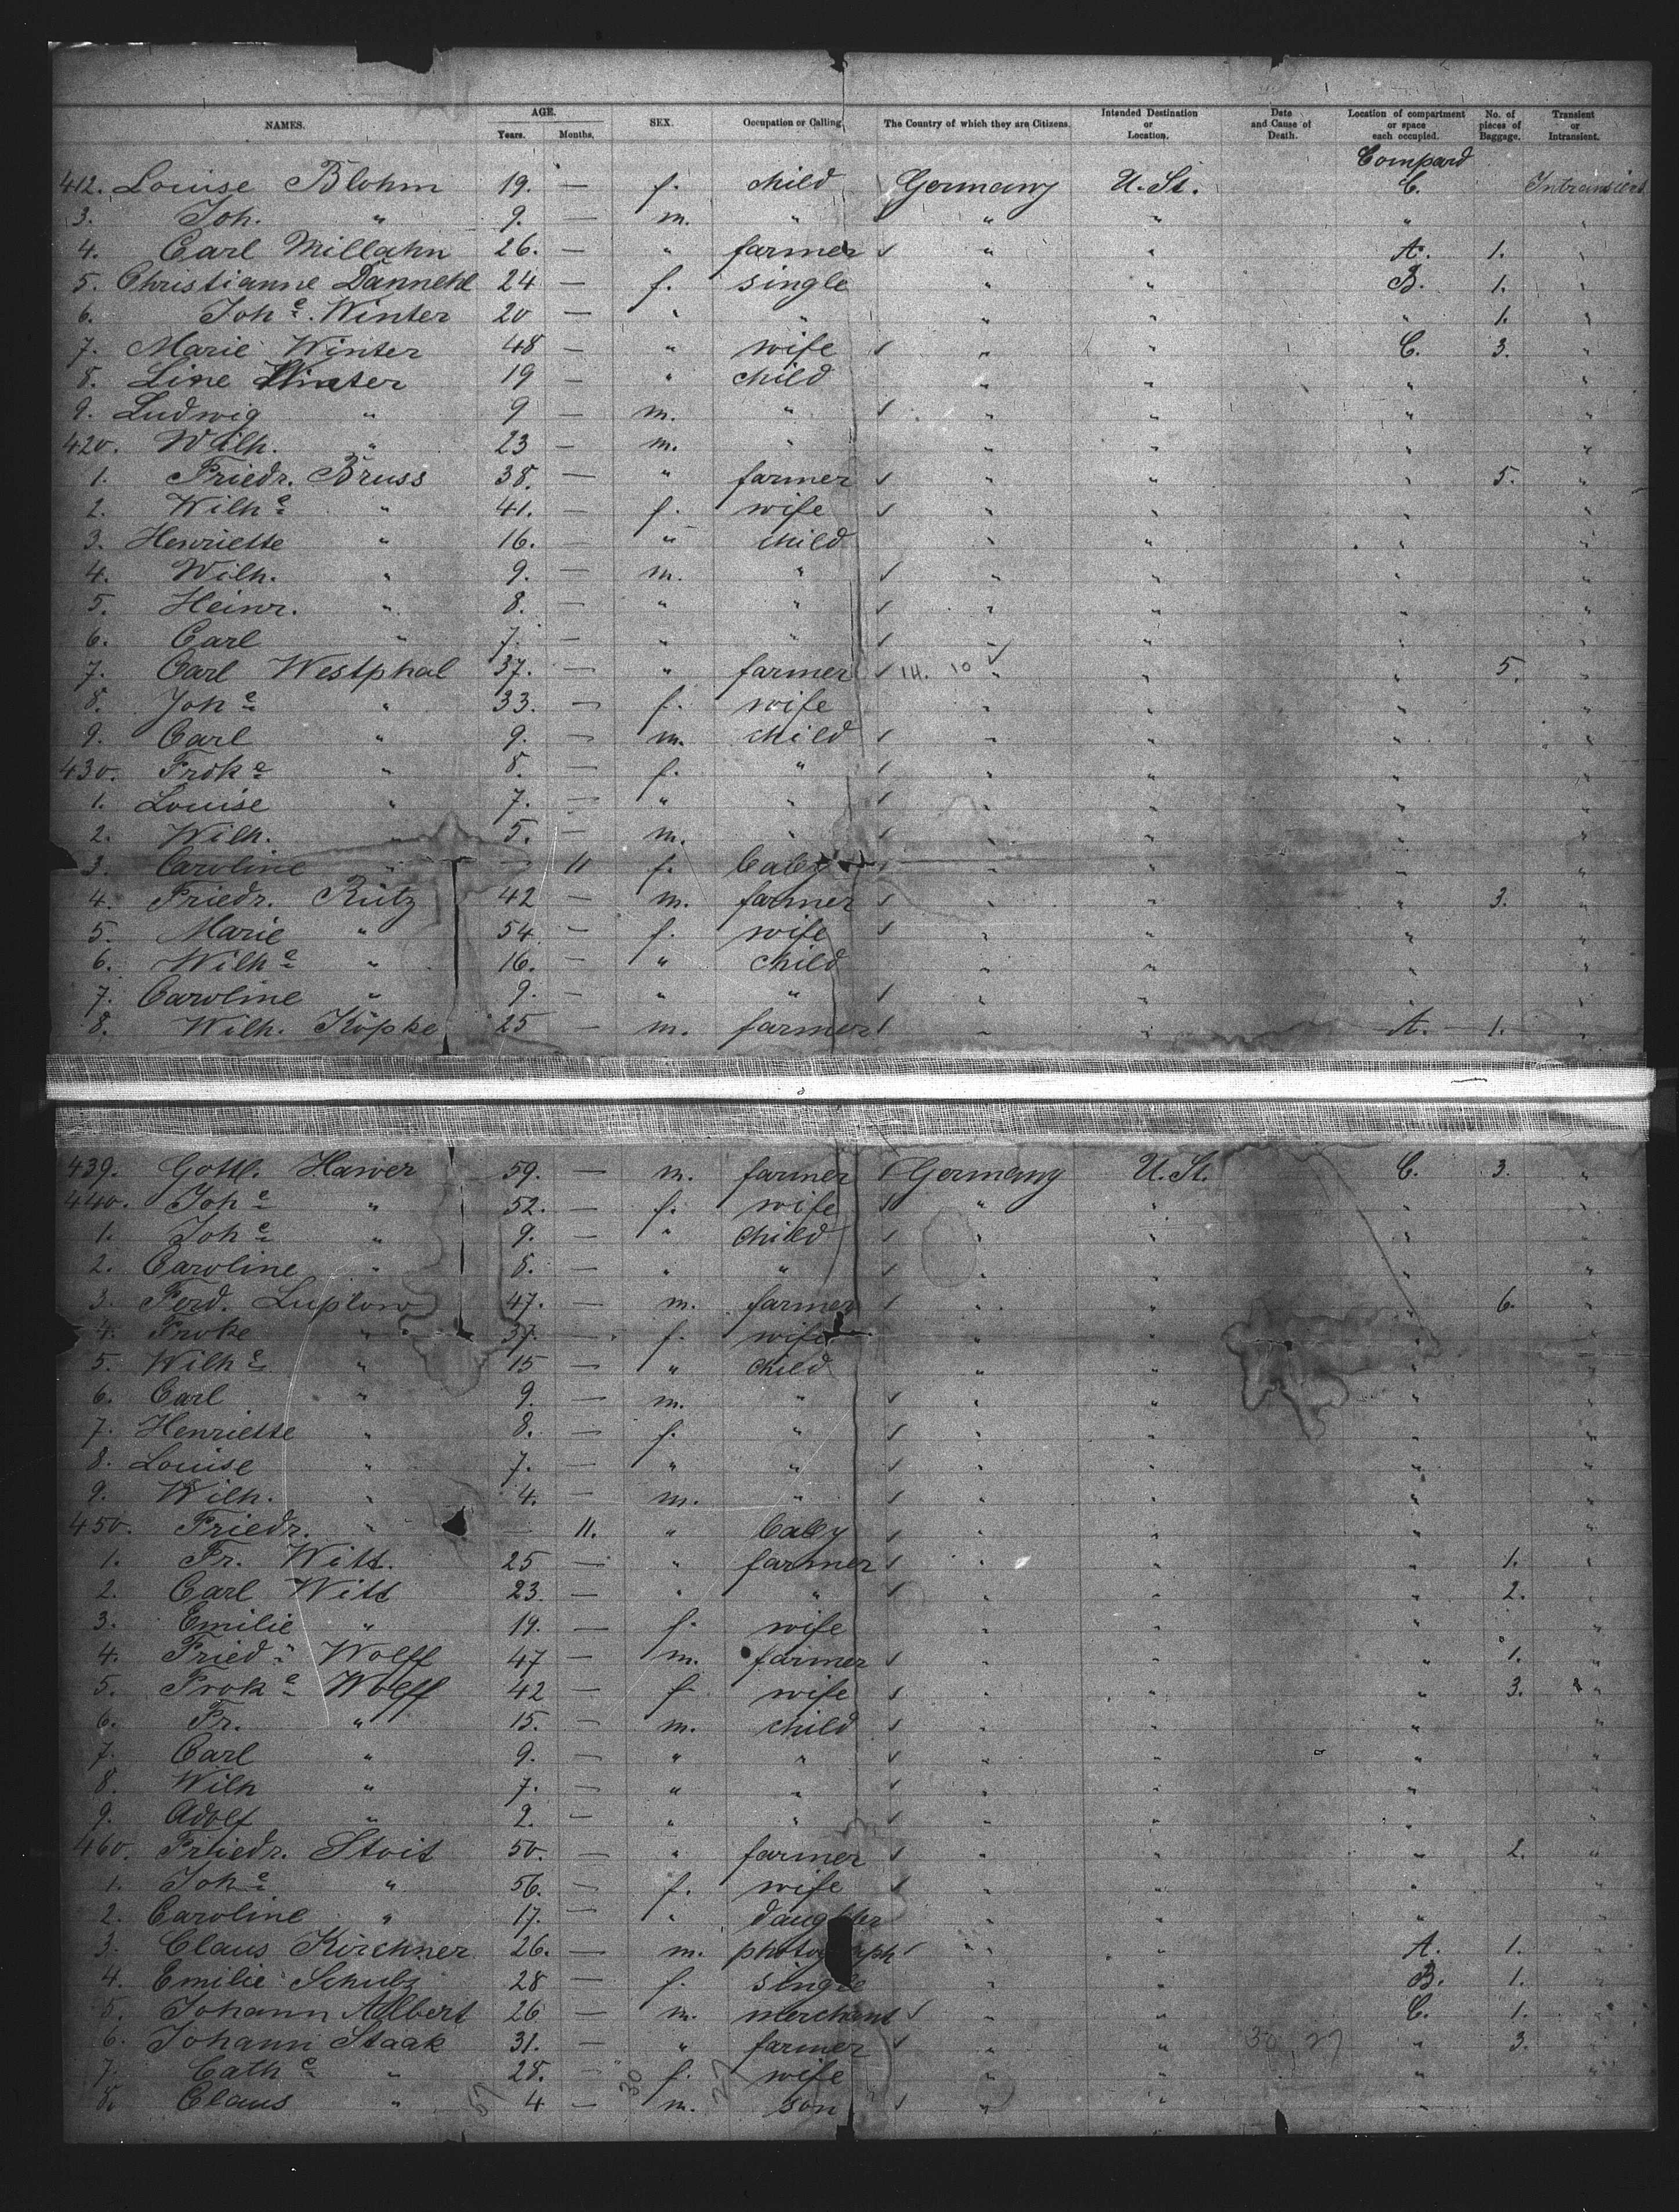 NAMES. AGE. Years. Months. SEX. Occupation or Calling. The Country of which they are Citizens. Intended Destination or Location. Date and Cause of Death. Location of compartment or space each occupied. No. of pieces of Baggage. Transient or Intransient.
Compard
412. Louise Blohm 19. — f. child Germany U. St. C. Intransient
3. Joh. " 9. — m. " " " " "
4. Carl Millahn 26. — " farmer ✓ " " A. 1. "
5. Christianne Dannehl 24 — f. single " " B. 1. "
6. Joh e. Winter 20 — " " " " " 1. "
7. Marie Winter 48 — " wife ✓ " " C. 3. "
8. Line Winter 19 — " child " " " "
9. Ludwig " 9 — m. " ✓ " " " "
420. Wilh. " 23 — m. " " " " "
1. Friedr. Bruss 38. — " farmer ✓ " " " 5. "
2. Wilh e " 41. — f. wife ✓ " " " "
3. Henriette " 16. — " child " " " "
4. Wilh. " 9. — m. " ✓ " " " "
5. Heinr. " 8. — " " ✓ " " " "
6. Carl " 7. — " " ✓ " " " "
7. Carl Westphal 37. — " farmer ✓ 14. 10 ✓ " " " 5. "
8. Joh e " 33. — f. wife " " " "
9. Carl " 9. — m. child ✓ " " " "
430. Frdk e " 8. — f. " ✓ " " " "
1. Louise " 7. — " " ✓ " " " "
2. Wilh. " 5. — m. " ✓ " " " "
3. Caroline " — 11 f. baby ✓ " " " "
4. Friedr. Rütz 42 — m. farmer ✓ " " " 3. "
5. Marie " 54 — f. wife ✓ " " " "
6. Wilh e " 16. — " child " " " "
7. Caroline " 9. — " " ✓ " " " "
8. Wilh. Köpke 25 — m. farmer ✓ " " A. 1. "
439. Gottl. Hawer 59. — m. farmer ✓ Germany U. St. C. 3. "
440. Joh e " 52. — f. wife ✓ " " " "
1. Joh e " 9. — " child ✓ " " " "
2. Caroline " 8. — " " ✓ " " " "
3. Ferd. Luplow 47. — m. farmer ✓ " " " 6. "
4. Frdke " 37. — f. wife " " " "
5. Wilh e " 15 — " child " " " "
6. Carl " 9. — m. " ✓ " " " "
7. Henriette " 8. — f. " ✓ " " " "
8. Louise " 7. — " " ✓ " " " "
9. Wilh. " 4. — m. " ✓ " " " "
450. Friedr. " — 11. " baby ✓ " " " "
1. Fr. Witt. 25 — " farmer ✓ " " " 1. "
2. Carl Witt 23 — " " ✓ " " " 2. "
3. Emilie " 19. — f. wife " " " "
4. Fried r Wolff 47 — m. farmer ✓ " " " 1. "
5. Frdk e Wolff 42 — f. wife ✓ " " " 3. "
6. Fr. " 15. — m. child ✓ " " " "
7. Carl " 9. — " " ✓ " " " "
8. Wilh " 7. — " " ✓ " " " "
9. Adolf " 2. — " " ✓ " " " "
460. Friedr. Stoit 50. — " farmer ✓ " " " 2. "
1. Joh e " 56. — f. wife ✓ " " " "
2. Caroline " 17. — " daughter " " " "
3. Claus Kirchner 26. — m. photograph ✓ " " A. 1. "
4. Emilie Schulz 28 — f. single " " B. 1. "
5. Johann Albert 26 — m. merchant ✓ " " C. 1. "
6. Johann Staak 31. — " farmer ✓ " " 30 27 " 3. "
7. Cath e " 28. — f. wife " " " "
8. Claus " 4 — m. son ✓ " " " "
57 30 27